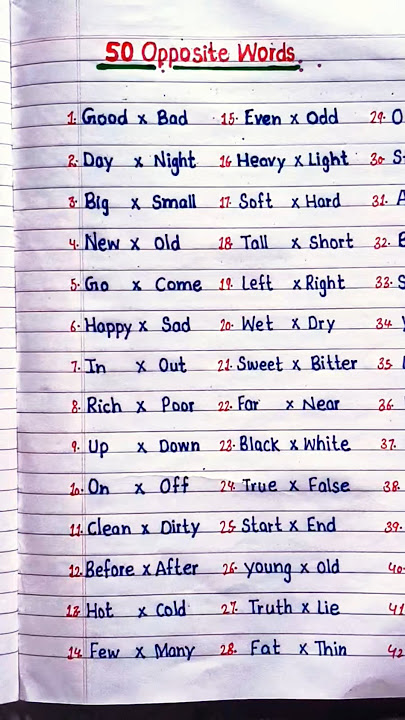 50 Opposite Words.
1. Good x Bad 15. Even x Odd 29. O
2. Day x Night 16 Heavy x Light 30. S
3. Big x Small 17. Soft x Hard 31. A
4. New x Old 18. Tall x Short 32. E
5. Go x Come 19. Left x Right 33. S
6. Happy x Sad 20. Wet x Dry 34.
7. In x Out 21. Sweet x Bitter 35.
8. Rich x Poor 22. Far x Near 36.
9. Up x Down 23. Black x White 37.
10. On x Off 24. True x False 38.
11. Clean x Dirty 25. Start x End 39.
12. Before x After 26. young x old 40.
13. Hot x Cold 27. Truth x Lie 41
14. Few x Many 28. Fat x Thin 42